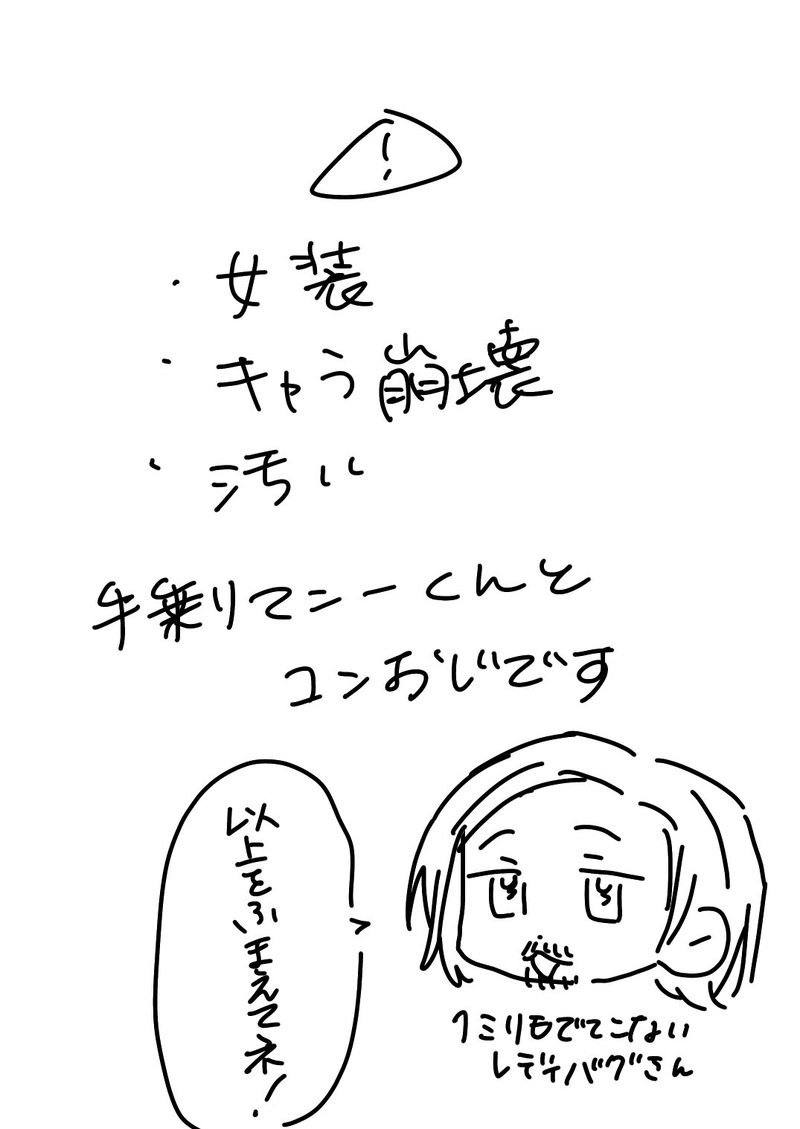 !
・女装
・キャラ崩壊
・汚い
手乗りマシーくんと
コンおじです
以上をふまえてネ!
1ミリもでてこない
レディバグさん